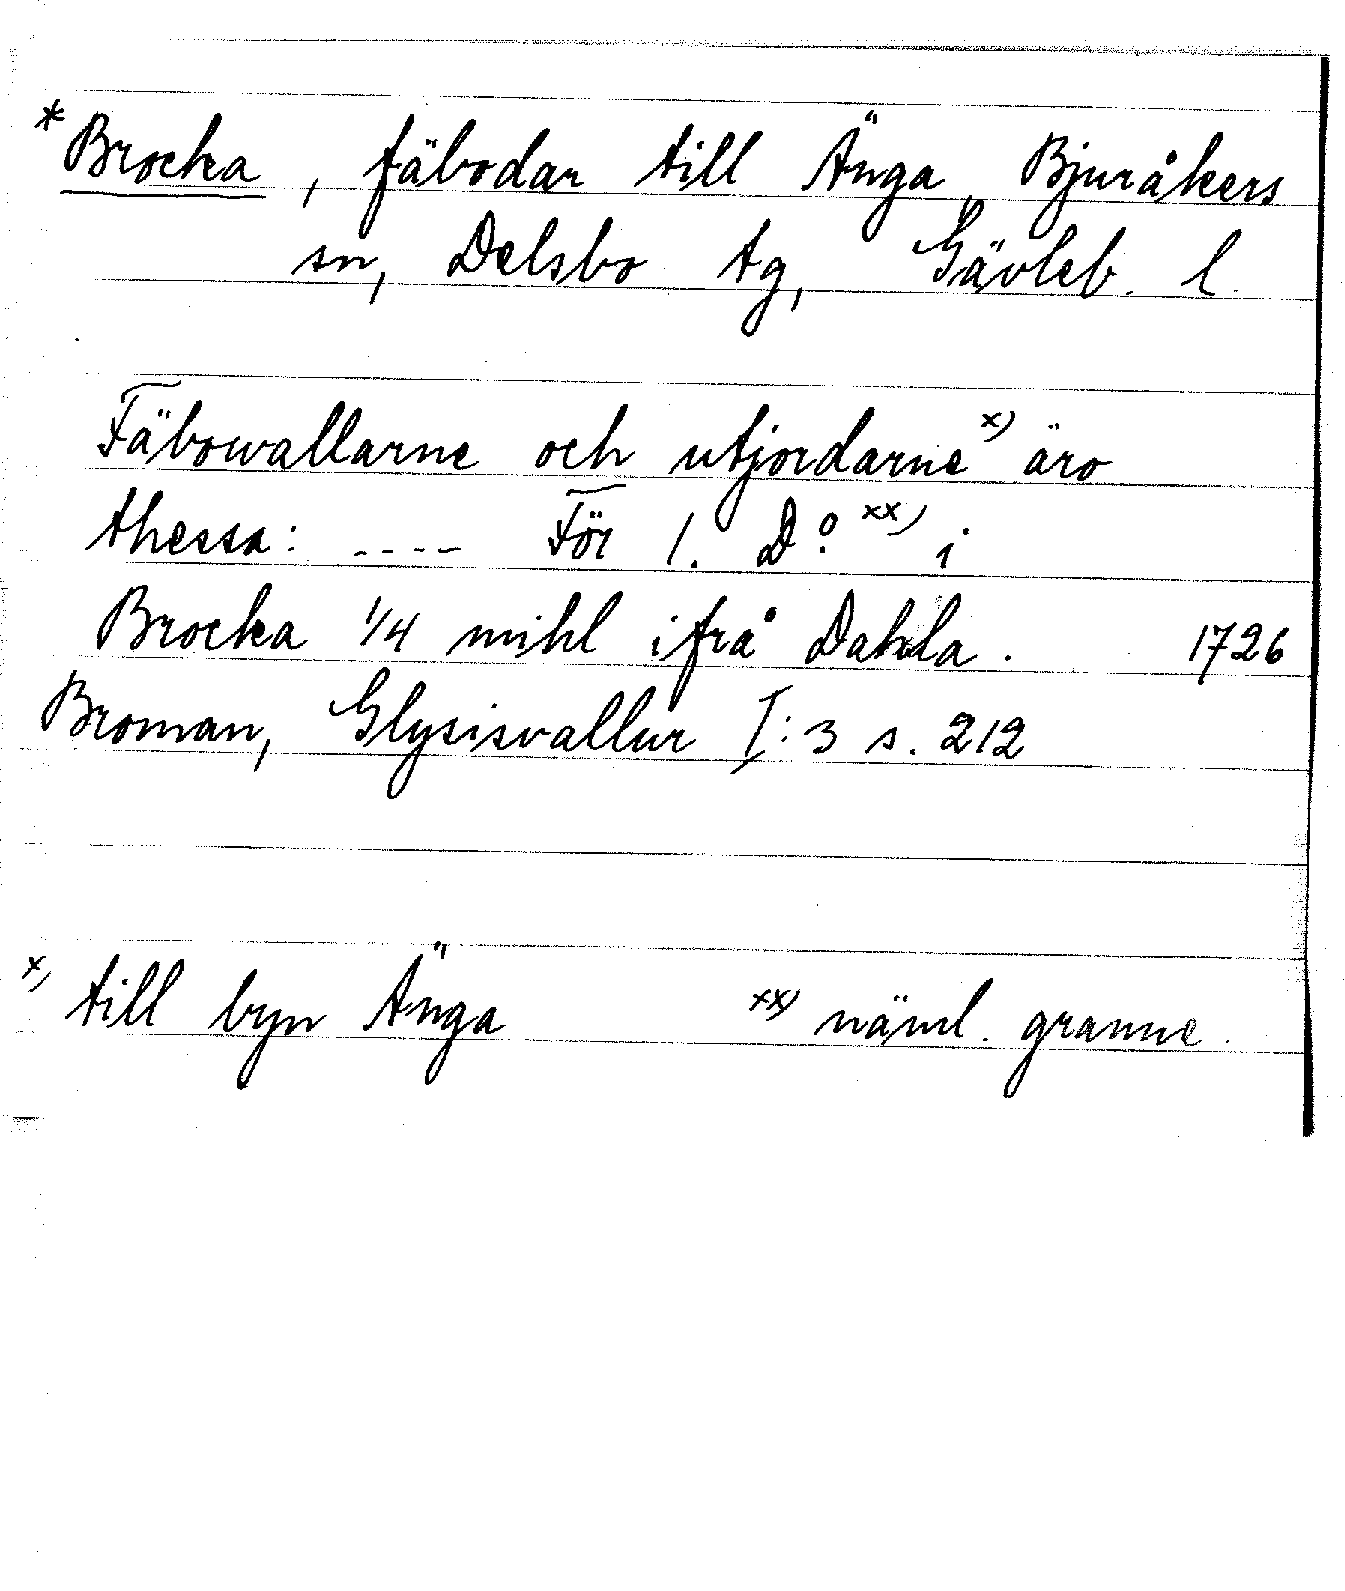 * Brocka, fäbodar till Änga, Bjuråkers
sn, Delsbo tg, Gävleb. l.
Fäbowallarne och utjordarne x) äro
thessa: ---- För 1. Do. xx) i
Brocka 1/4 mihl ifrå Dahla. 1726
Broman, Glysisvallur I:3 s. 212
x) till byn Änga xx) näml. granne.